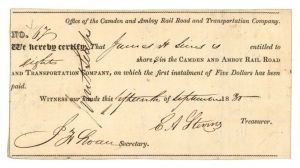 Office of the Camden and Amboy Rail Road and Transportation Company.
No. 57
We hereby certify, That James H Sims is entitled to
eight share s in the CAMDEN AND AMBOY RAIL ROAD
AND TRANSPORTATION COMPANY, on which the first instalment of Five Dollars has been
paid.
WITNESS our hands this fifteenth of September 1830
Treasurer.
Secretary.